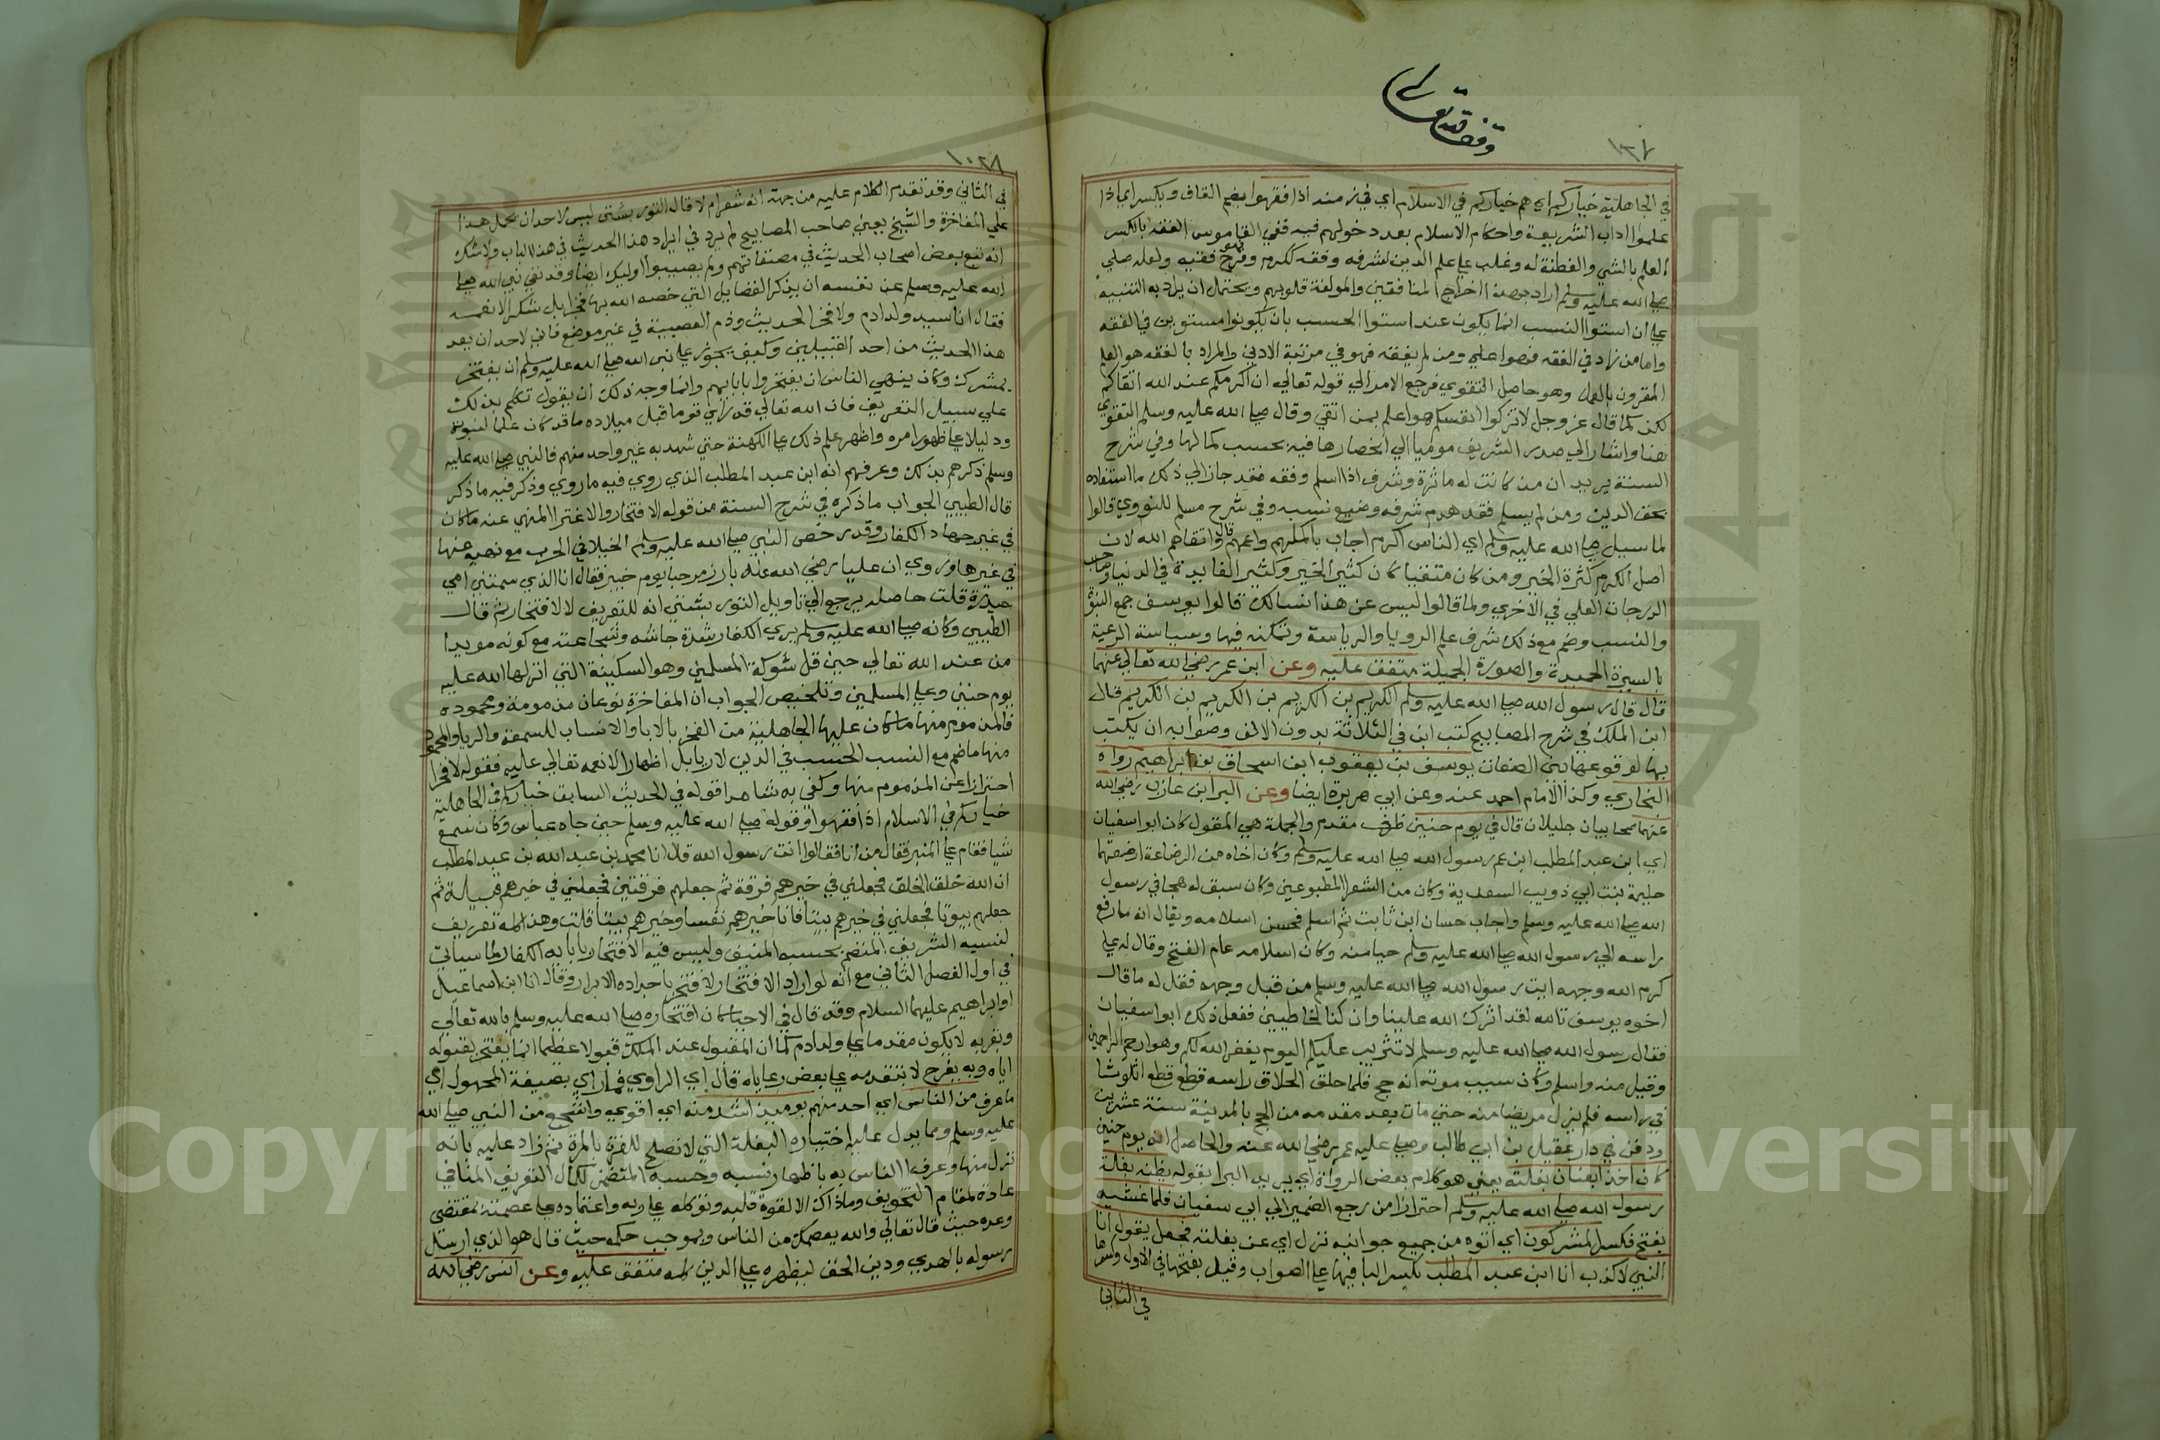 وقف لله تعالى
١٣٧
في الجاهلية خياركم اي هم خياركم في الاسلام اي في زمنه اذا فقهوا بضم القاف وبكسر اي اذا
علموا اداب الشريعة واحكام الاسلام بعد دخولهم فيه ففي القاموس الفقه بالكسر
العلم بالشي والفطنة له وغلب على علم الدين لشرفه وفقه ككرم وفرح فهو فقيه ولعله صلى
صلى الله عليه وسلم اراد بهذا اخراج المنافقين والمولفة قلوبهم ويحتمل ان يراد به التنبيه
على ان استوا النسب انما يكون عند استوا الحسب بان يكونوا مستوين في الفقه
واما من زاد في الفقه فهو اعلى ومن لم يفقه فهو في مرتبة الادنى والمراد بالفقه هو العلم
المقرون بالعمل وهو حاصل التقوى فرجع الامر الي قوله تعالي ان اكرمكم عند الله اتقاكم
لكن كما قال عز وجل لا تزكوا انفسكم هو اعلم بمن اتقي وقال صلى الله عليه وسلم التقوى
هنا واشار الي صدره الشريف موميا الي انحصارها فيه بحسب كمالها وفي شرح
السنة يريد ان من كانت له ماثرة وشرف اذا اسلم وفقه فقد حاز الي ذلك ما استفاده
بحق الدين ومن لم يسلم فقد هدم شرفه وضيع نسبه وفي شرح مسلم للنووي قالوا
لما سيل صلى الله عليه وسلم اي الناس اكرم اجاب باكملهم واعمهم قال اتقاهم لله لان
اصل الكرم كثرة الخير ومن كان متقيا كان كثير الخير وكثير الفايدة في الدنيا وصاحب
الدرجات العلي في الاخري ولما قالوا ليس عن هذا نسالك قال يوسف جمع النبوة
والنسب وضم مع ذلك شرف علم الرويا والرياسة وتمكنه فيها وسياسة الرعية
بالسيرة الحميدة والصورة الجميلة متفق عليه وعن ابن عمر رضي الله تعالي عنهما
قال قال رسول الله صلى الله عليه وسلم الكريم بن الكريم بن الكريم بن الكريم قال
ابن الملك في شرح المصابيح كتب ابن في الثلاثة بدون الالف وصوابه ان يكتب
بها لوقوعها بين الصفات يوسف بن يعقوب ابن اسحاق بن ابراهيم رواه
البخاري وكذا الامام احمد عنه وعن ابي هريرة ايضا وعن البرا بن عازب رضي الله
عنهما صحابيان جليلان قال في يوم حنين ظرف مقدم والجملة هي المقول كان ابو سفيان
اي ابن عبد المطلب ابن عم رسول الله صلى الله عليه وسلم وكان اخاه من الرضاعة ارضعتهما
حليمة بنت ابي ذويب السعدية وكان من الشعرا المطبوعين وكان سبق له هجا في رسول
الله صلى الله عليه وسلم واجاب حسان ابن ثابت ثم اسلم فحسن اسلامه ويقال انه ما رفع
راسه الي رسول الله صلى الله عليه وسلم حيا منه وكان اسلامه عام الفتح وقال له علي
كرم الله وجهه ايت رسول الله صلى الله عليه وسلم من قبل وجهه فقل له ما قال
اخوه يوسف تالله لقد اثرك الله علينا وان كنا لخاطيين ففعل ذلك ابو اسفيان
فقال رسول الله صلى الله عليه وسلم لا تثريب عليكم اليوم يغفر الله لكم وهو ارحم الراحمين
وقبل منه واسلم وكان سبب موته انه حج فلما حلق الحلاق راسه قطع
في راسه فلم يزل مريضا منه حتي مات بعد مقدمه من الحج بالمدينة سنة عشرين
ودفن في دار عقيل بن ابي طالب وصلى عليه عمر رضي الله عنه والحاصل انه يوم حنين
كان اخذا بعنان بغلته يعني هو كلام بعض الرواة اي يريد البرا بقوله بغلته بغلة
رسول الله صلى الله عليه وسلم احترازا من رجع الضمير الي ابي سفيان فلما غشيه
بفتح فكسر المشركون اي اتوه من جميع جوانبه نزل اي عن بغلته فجعل يقول انا
النبي لا كذب انا ابن عبد المطلب بكسر البا فيهما على الصواب وقيل بفتحها في الاول وكسرها
في الثاني
١٠٣٨
في الثاني وقد تقدم الكلام عليه من جهة انه شعر ام لا قال التوربشتي ليس لاحد ان يحمل هذا
على المفاخرة والشيخ يعني صاحب المصابيح لم يرد في ايراد هذا الحديث في هذا الباب ولا شك
انه تبع بعض اصحاب الحديث في مصنفاتهم ولم يصيبوا اوليك ايضا وقد نفي نبي الله صلى
الله عليه وسلم عن نفسه ان يذكر الفضايل التي خصه الله بها فخرا بل شكرا لانعمه
فقال انا سيد ولد ادم ولا فخر الحديث وذم العصبية في غير موضع فاني لاحد ان يعد
هذا الحديث من احد القبيلين وكيف يجوز على نبي الله صلى الله عليه وسلم ان يفتخر
بمشرك وكان ينهي الناس ان يفتخروا بابايهم وانما وجه ذلك ان يقول تكلم بذلك
على سبيل التعريف فان الله تعالي قد اري قوما قبل ميلاده ما قد كان علما لنبوته
ودليلا على ظهور امره واظهر علم ذلك على الكهنة حتي شهد به غير واحد منهم فالنبي صلى الله عليه
وسلم ذكرهم بذلك وعرفهم انه ابن عبد المطلب الذي روي فيه ما روي وذكر فيه ما ذكر
قال الطيبي الجواب ما ذكره في شرح السنة من قوله الافتخار والاغترا المنهي عنه ما كان
في غير جهاد الكفار وقد رخص النبي صلى الله عليه وسلم الخيلا في الحرب مع نهيه عنها
في غيرها وروي ان عليا رضي الله عنه بارز مرحبا يوم خيبر فقال انا الذي سمتني امي
حيدرة قلت حاصله يرجع الي تاويل التوربشتي انه للتعريف لا للافتخار ثم قال
الطيبي وكانه صلى الله عليه وسلم يري الكفار شدة جاشه وشجاعته مع كونه مويدا
من عند الله تعالي حين قل شوكة المسلمين وهو السكينة التي انزلها الله عليه
يوم حنين وعلى المسلمين وتلخيص الجواب ان المفاخرة نوعان مذمومة ومحمودة
فالمذموم منها ما كان عليها الجاهلية من الفخر بالابا والانساب للسمعة والريا والمحمود
منها ما ضم مع النسب الحسب في الدين لا ريا بل اظهارا لانعمه تعالي عليه فقوله لا فخر
احترازا عن المذموم منها وكفي به شاهدا قوله في الحديث السابق خياركم في الجاهلية
خياركم في الاسلام اذا فقهوا وقوله صلى الله عليه وسلم حين جاه عباس وكان سمع
شيا فقام على المنبر فقال من انا فقالوا انت رسول الله قال انا محمد بن عبد الله بن عبد المطلب
ان الله خلق الخلق فجعلني في خيرهم فرقة ثم جعلهم فرقتين فجعلني في خيرهم قبيلة ثم
جعلهم بيوتا فجعلني في خيرهم بيتا فانا خيرهم نفسا وخيرهم بيتا قلت وهذا كله تعريف
لنفسيه الشريف المنضم بحسبه المنيف وليس فيه الافتخار بابايه الكفار كما سياتي
في اول الفصل الثاني مع انه لو اراد الافتخار لافتخر باجداده الابرار وقال انا ابن اسماعيل
او ابراهيم عليهما السلام وقد قال في الاحيا كان افتخاره صلى الله عليه وسلم بالله تعالي
وبقربه لا بكونه مقدما على ولد ادم كما ان المقبول عند الملك قبولا عظيما انما يفتخر بقبوله
اياه وبه يفرح لا بتقدمه على بعض رعاياه قال اي الراوي فما راي بصيغة المجهول اي
ما عرف من الناس اي احد منهم يوميذ اشد منه اي اقوي واشجع من النبي صلى الله
عليه وسلم ومما يدل عليه اختياره البغلة التي لا تصلح للفرة بالمرة ثم زاد عليه بانه
نزل منها وعرف الناس به باظهار نسبه وحسبه المتضمن لكمال التعريف المنافي
عادة لمقام التخويف وما ذاك الا لقوة قلبه وتوكله على ربه واعتماده على عصمته بمقتضى
وعده حيث قال تعالي والله يعصمك من الناس وبموجب حكمه حيث قال هو الذي ارسل
رسوله بالهدي ودين الحق ليظهره على الدين كله متفق عليه وعن انس رضي الله
Copyright © King Saud University